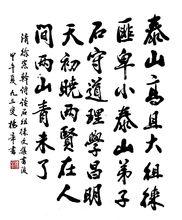 泰山高且大徂徕
匪卑小泰山弟子
石守道理学昌明
天初晓两贤在人
间两山青未了
清徐宗幹诗读石徂徕文集书后
甲午夏九三叟杨辛书